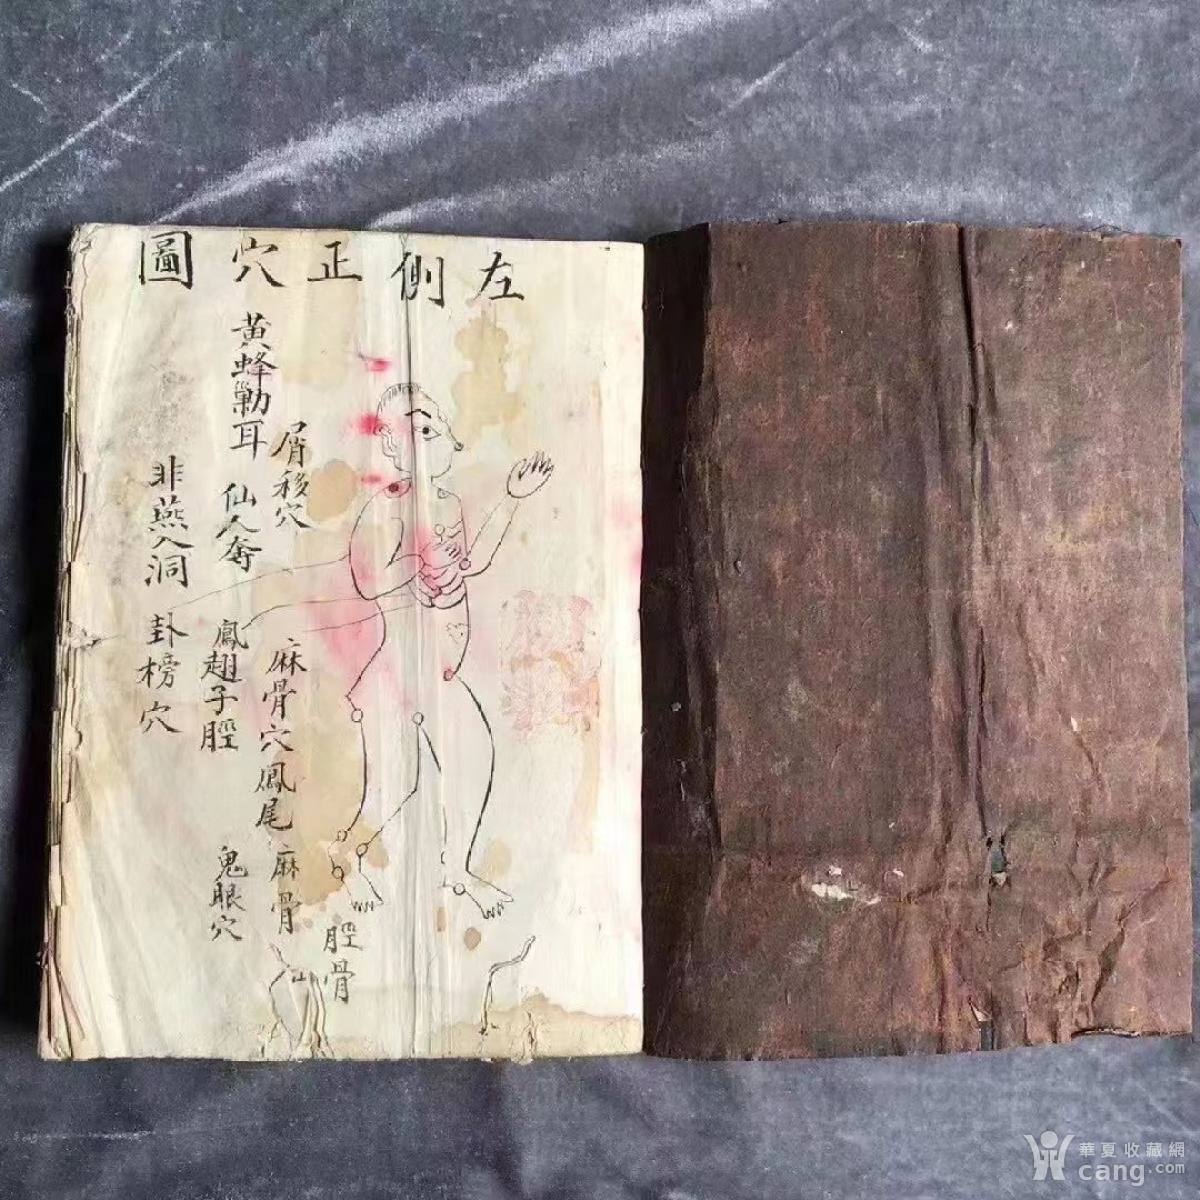 左側正穴圖
屑移穴
麻骨穴
鳳尾
麻骨
脛骨
黃蜂勦耳
仙人奪
鳳翅子脛
鬼眼穴
非燕入洞
卦榜穴
華夏收藏網
cang.com